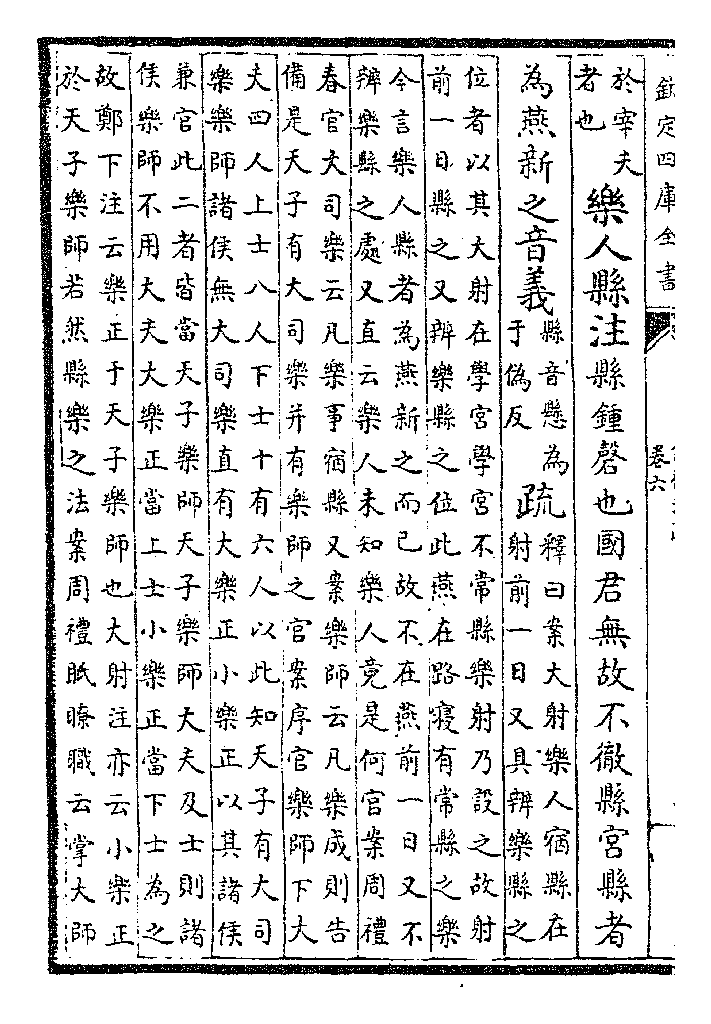 欽定四庫全書
卷六
於宰夫
者也
樂人縣注縣鍾磬也國君無故不徹縣宮縣者
為燕新之音義
縣音懸為
于偽反
疏
釋曰案大射樂人宿縣在
射前一日又具辨樂縣之
位者以其大射在學宮學宮不常縣樂射乃設之故射
前一日縣之又辨樂縣之位此燕在路寢有常縣之樂
今言樂人縣者為燕新之而已故不在燕前一日又不
辨樂縣之處又直云樂人未知樂人竟是何官案周禮
春官大司樂云凡樂事宿縣又案樂師云凡樂成則告
備是天子有大司樂并有樂師之官案序官樂師下大
夫四人上士八人下士十有六人以此知天子有大司
樂樂師諸侯無大司樂直有大樂正小樂正以其諸侯
兼官此二者皆當天子樂師天子樂師大夫及士則諸
侯樂師不用大夫大樂正當上士小樂正當下士為之
故鄭下注云樂正于天子樂師也大射注亦云小樂正
於天子樂師若然縣樂之法案周禮眡瞭職云掌大師